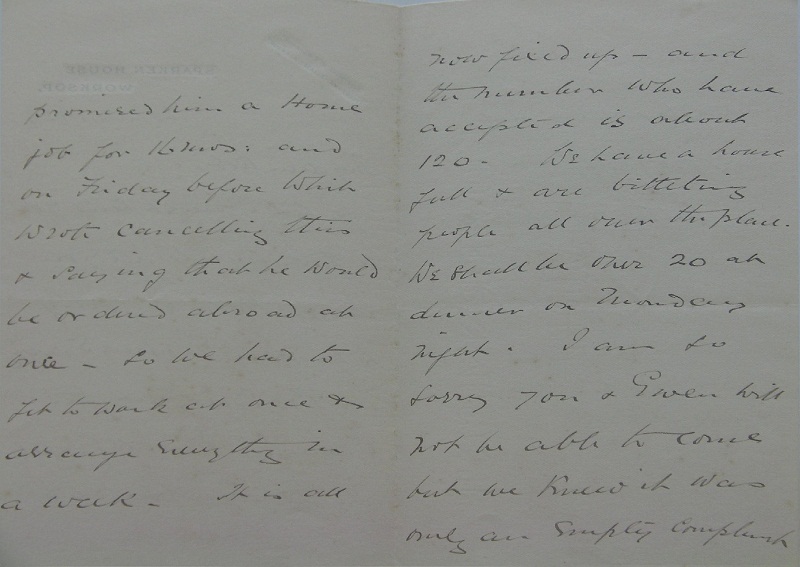 SPARKEN HOUSE
WORKSOP.
promised him a Home
job for 16 mos: and
on Friday before Whit
wrote cancelling this
& saying that he would
be ordered abroad at
once - so we had to
set to work at once &
arrange everything in
a week - It is all
now fixed up - and
the number who have
accepted is about
120 - We have a house
full & are billeting
people all over the place.
We shall be over 20 at
dinner on Monday
night. I am so
sorry you & Gwen will
not be able to come
but we knew it was
only an empty compliment